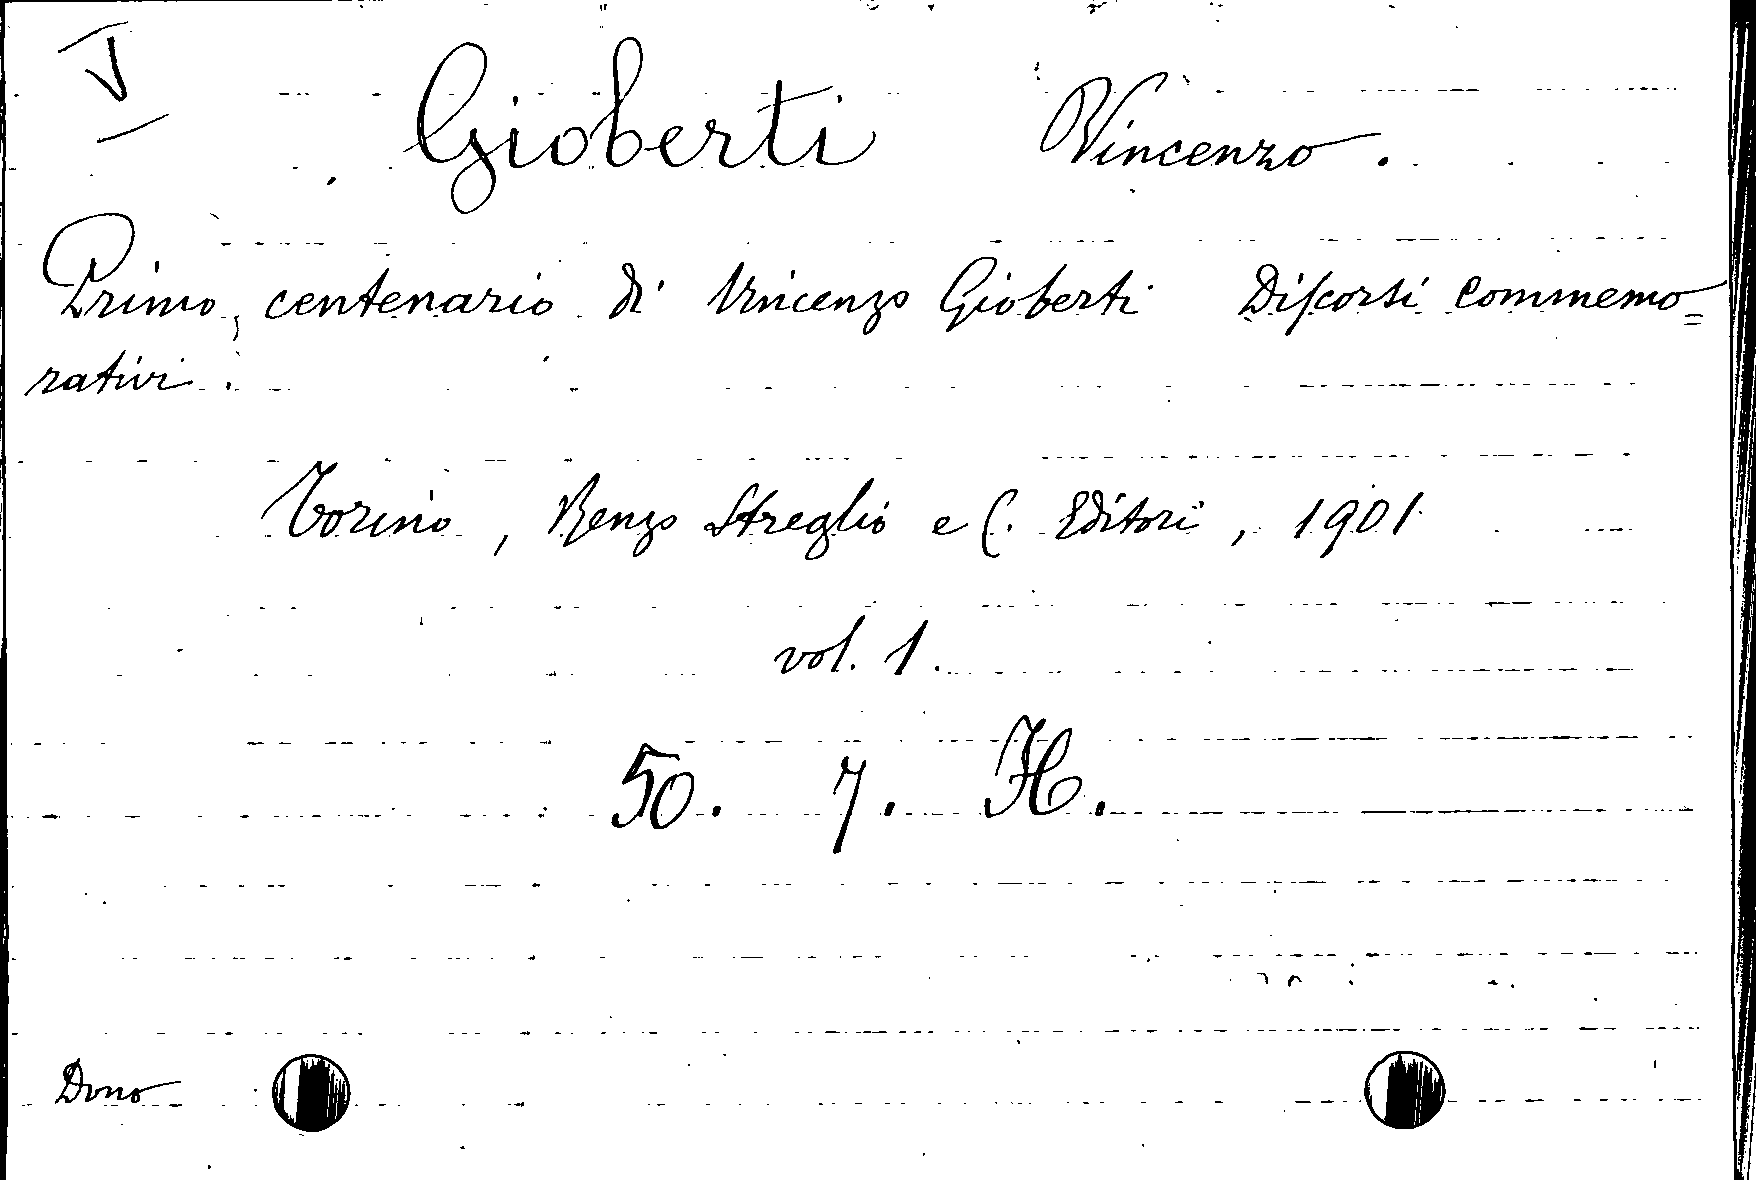 V
Gioberti Vincenzo.
Primo centenario di Vincenzo Gioberti Discorsi commemo=
rativi.
Torino, Renzo Streglio e C. Editori, 1901
vol. 1.
50. 7. H.
Dono